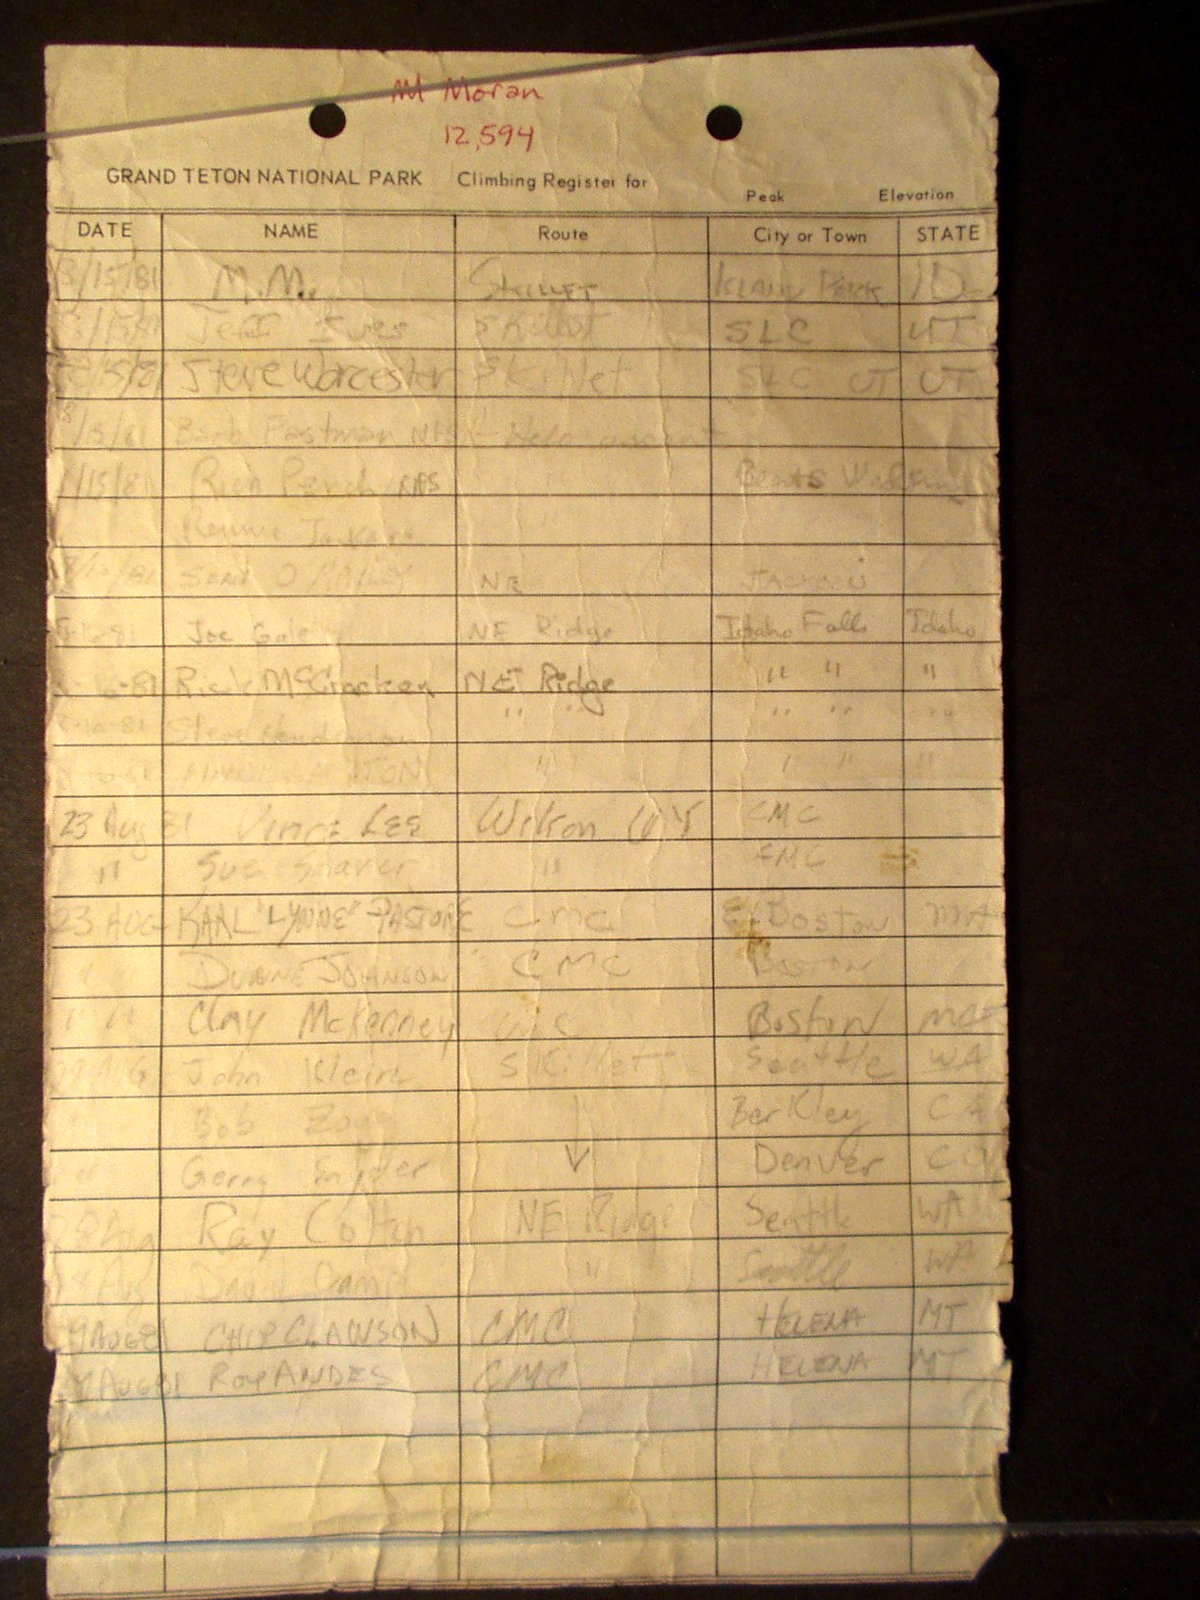 Mt Moran
12,594
GRAND TETON NATIONAL PARK Climbing Register for Peak Elevation
DATE NAME Route City or Town STATE
8/15/81 M.M. SKILLET ISLAND PARK ID
8/15/81 Jeff SKillet SLC UT
8/15/81 Steve Worcester Skillet SLC UT UT
8/15/81
/15/81 Rick NPS Beats
SEAN O'MALLEY NE JACKSON
81 Joe Gale NE Ridge Idaho Falls Idaho
-16-81 Rick McCracken NE Ridge " " "
8-16-81 Steve Henderson " " " " "
" " " "
23 Aug 81 Vince LEE Wilson WY CMC
" Sue Shaver " CMC
23 AUG KARL "LYNNE" PASTORE CMC E. Boston MA
" " DUANE JOHNSON CMC BOSTON
" " Clay McKenney CMC Boston MA
AUG John Klein Skillett Seattle WA
" Bob Berkley CA
" Gerry Snyder Denver CO
28 Aug Ray NE Ridge Seattle WA
28 Aug David " Seattle WA
AUG 81 CHIP CLAWSON CMC HELENA MT
AUG 81 Roy ANDES CMC HELENA MT